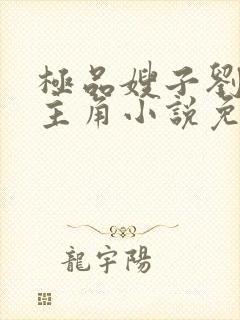 極品嫂子劉
主角小說免
龍宇陽